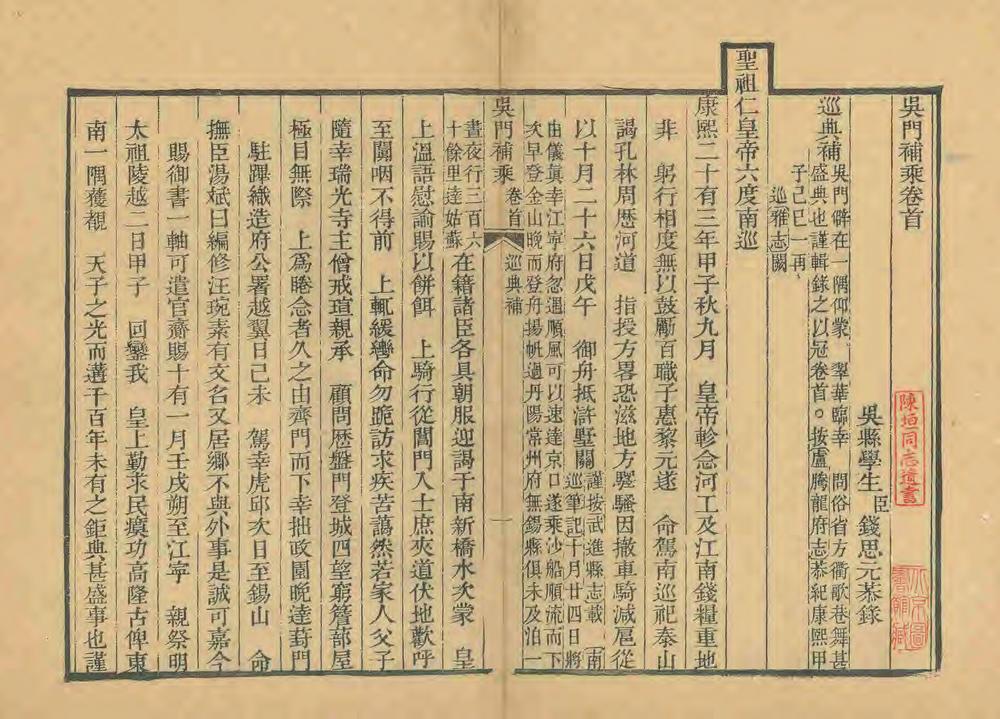 吳門補乘卷首
吳縣學生臣錢思元恭錄
巡典補
吳門僻在一隅仰蒙 翠華臨幸 問俗省方衢歌巷舞甚
盛典也謹輯錄之以冠卷首。按盧騰龍府志恭紀康熙甲
子己巳一再
巡雅志闕
聖祖仁皇帝六度南巡
康熙二十有三年甲子秋九月 皇帝軫念河工及江南錢糧重地
非 躬行相度無以鼓勵百職子惠黎元遂 命駕南巡祀泰山
謁孔林周歷河道 指授方畧恐滋地方騷因撤車騎減扈從
以十月二十六日戊午 御舟抵滸墅關
謹按武進縣志載 南
巡筆記十月廿四日 將
由儀眞幸江寧府忽遇順風可以速達京口遂乘沙船順流而下
次早登金山晚而登舟揚帆過丹陽常州府無錫縣俱未及泊一
吳門補乘 卷首 巡典補 一
晝夜行三百六
十餘里達姑蘇
在籍諸臣各具朝服迎謁于南新橋水次蒙 皇
上溫語慰諭賜以餅餌 上騎行從閶門入士庶夾道伏地歡呼
至闐咽不得前 上輒緩轡命勿跪訪求疾苦藹然若家人父子
隨幸瑞光寺主僧戒瑄親承 顧問歷盤門登城四望窮簷蔀屋
極目無際 上爲睠念者久之由齊門而下幸拙政園晚達葑門
駐蹕織造府公署越翼日己未 駕幸虎邱次日至錫山 命
撫臣湯斌曰編修汪琬素有文名又居鄉不與外事是誠可嘉今
賜御書一軸可遣官齎賜十有一月壬戌朔至江寧 親祭明
太祖陵越二日甲子 回鑾我 皇上勤求民瘼功高隆古俾東
南一隅獲覩 天子之光而遘千百年未有之鉅典甚盛事也謹
陳垣同志遺書
北京圖書館藏